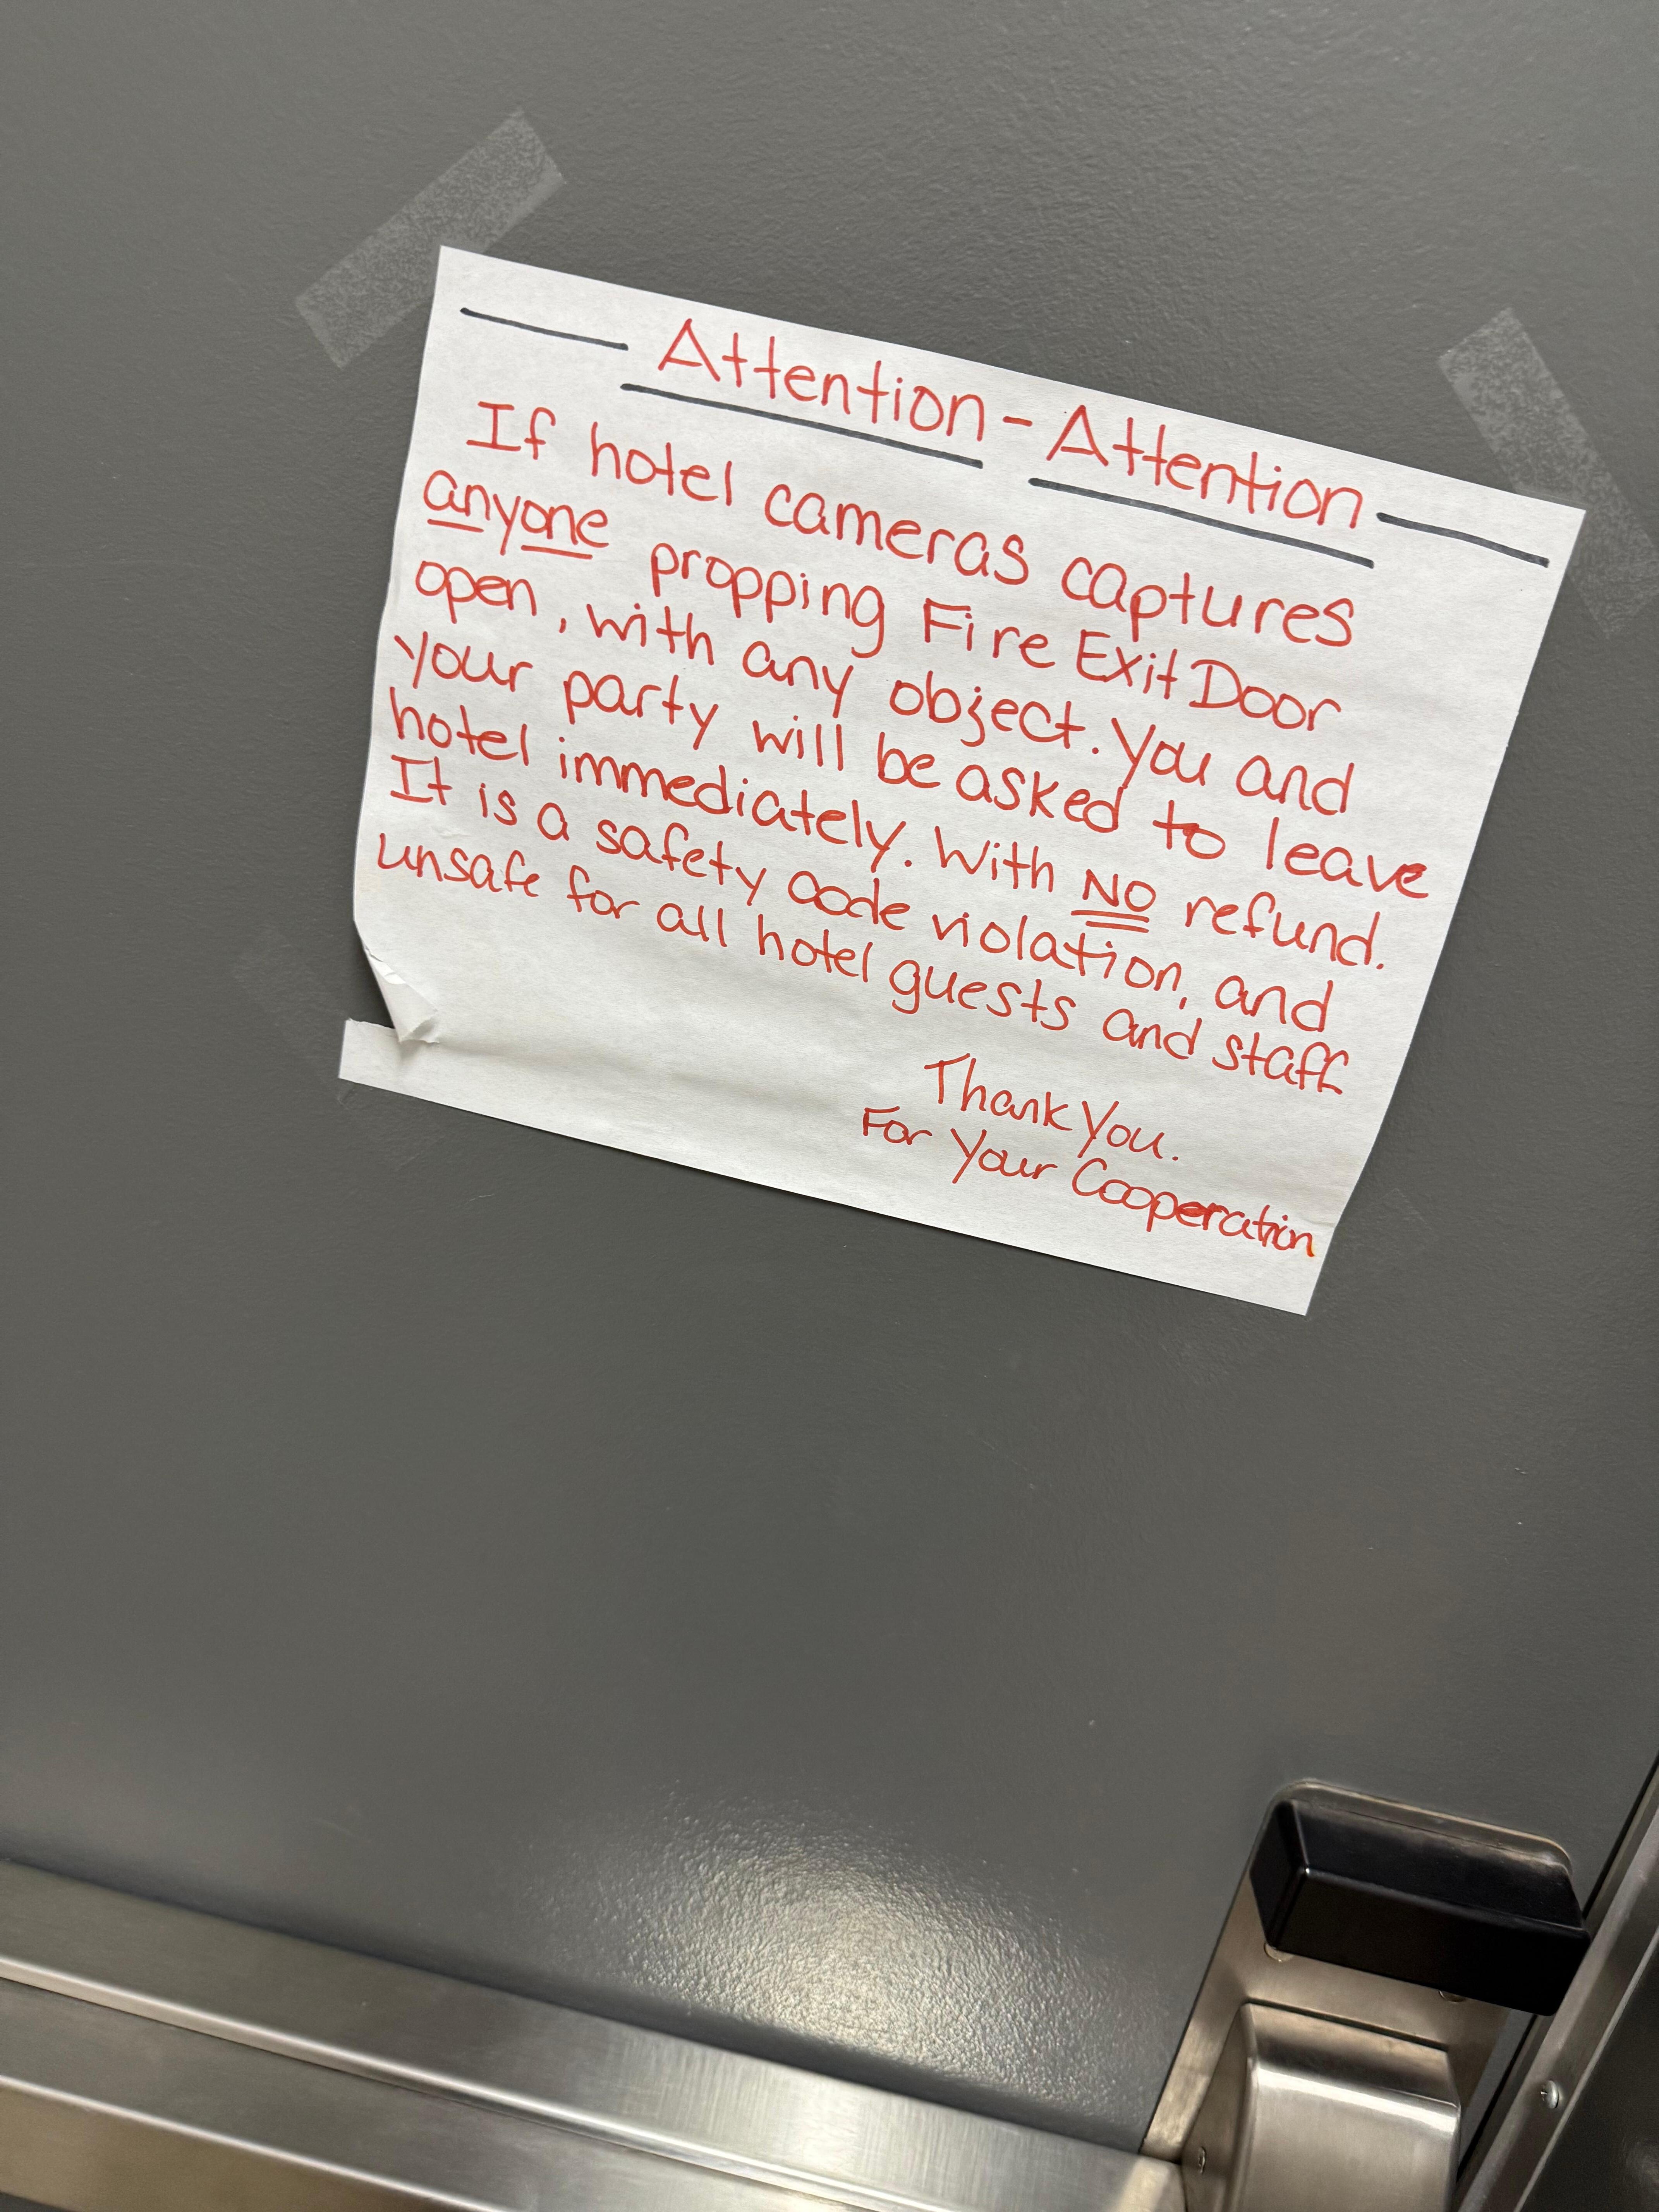 — Attention - Attention —
If hotel cameras captures
anyone propping Fire Exit Door
open, with any object. You and
your party will be asked to leave
hotel immediately. With NO refund.
It is a safety code violation, and
unsafe for all hotel guests and staff
Thank You.
For Your Cooperation